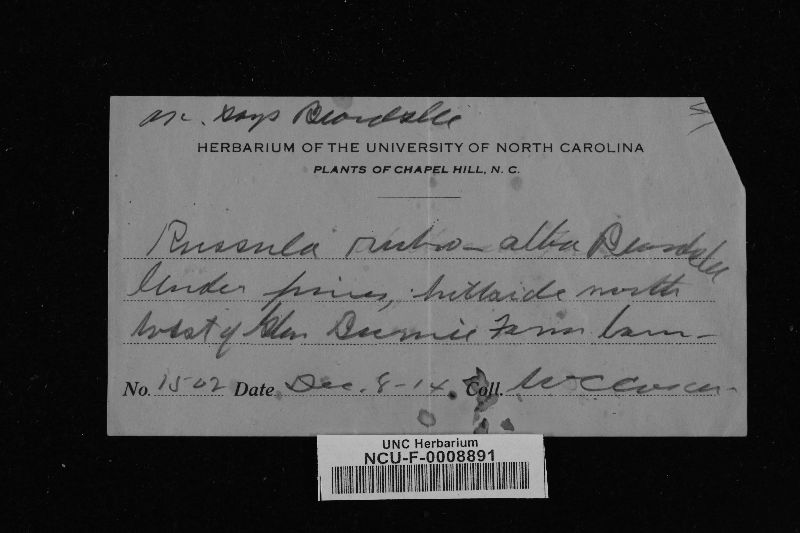 says Beardslee
HERBARIUM OF THE UNIVERSITY OF NORTH CAROLINA
PLANTS OF CHAPEL HILL, N. C.
Russula rubro-alba Beardslee
Under pines, hillside north
West of Glen Burnie Farm barn-
No. 1502 Date Dec. 8-14. Coll. W C Coker-
UNC Herbarium
NCU-F-0008891